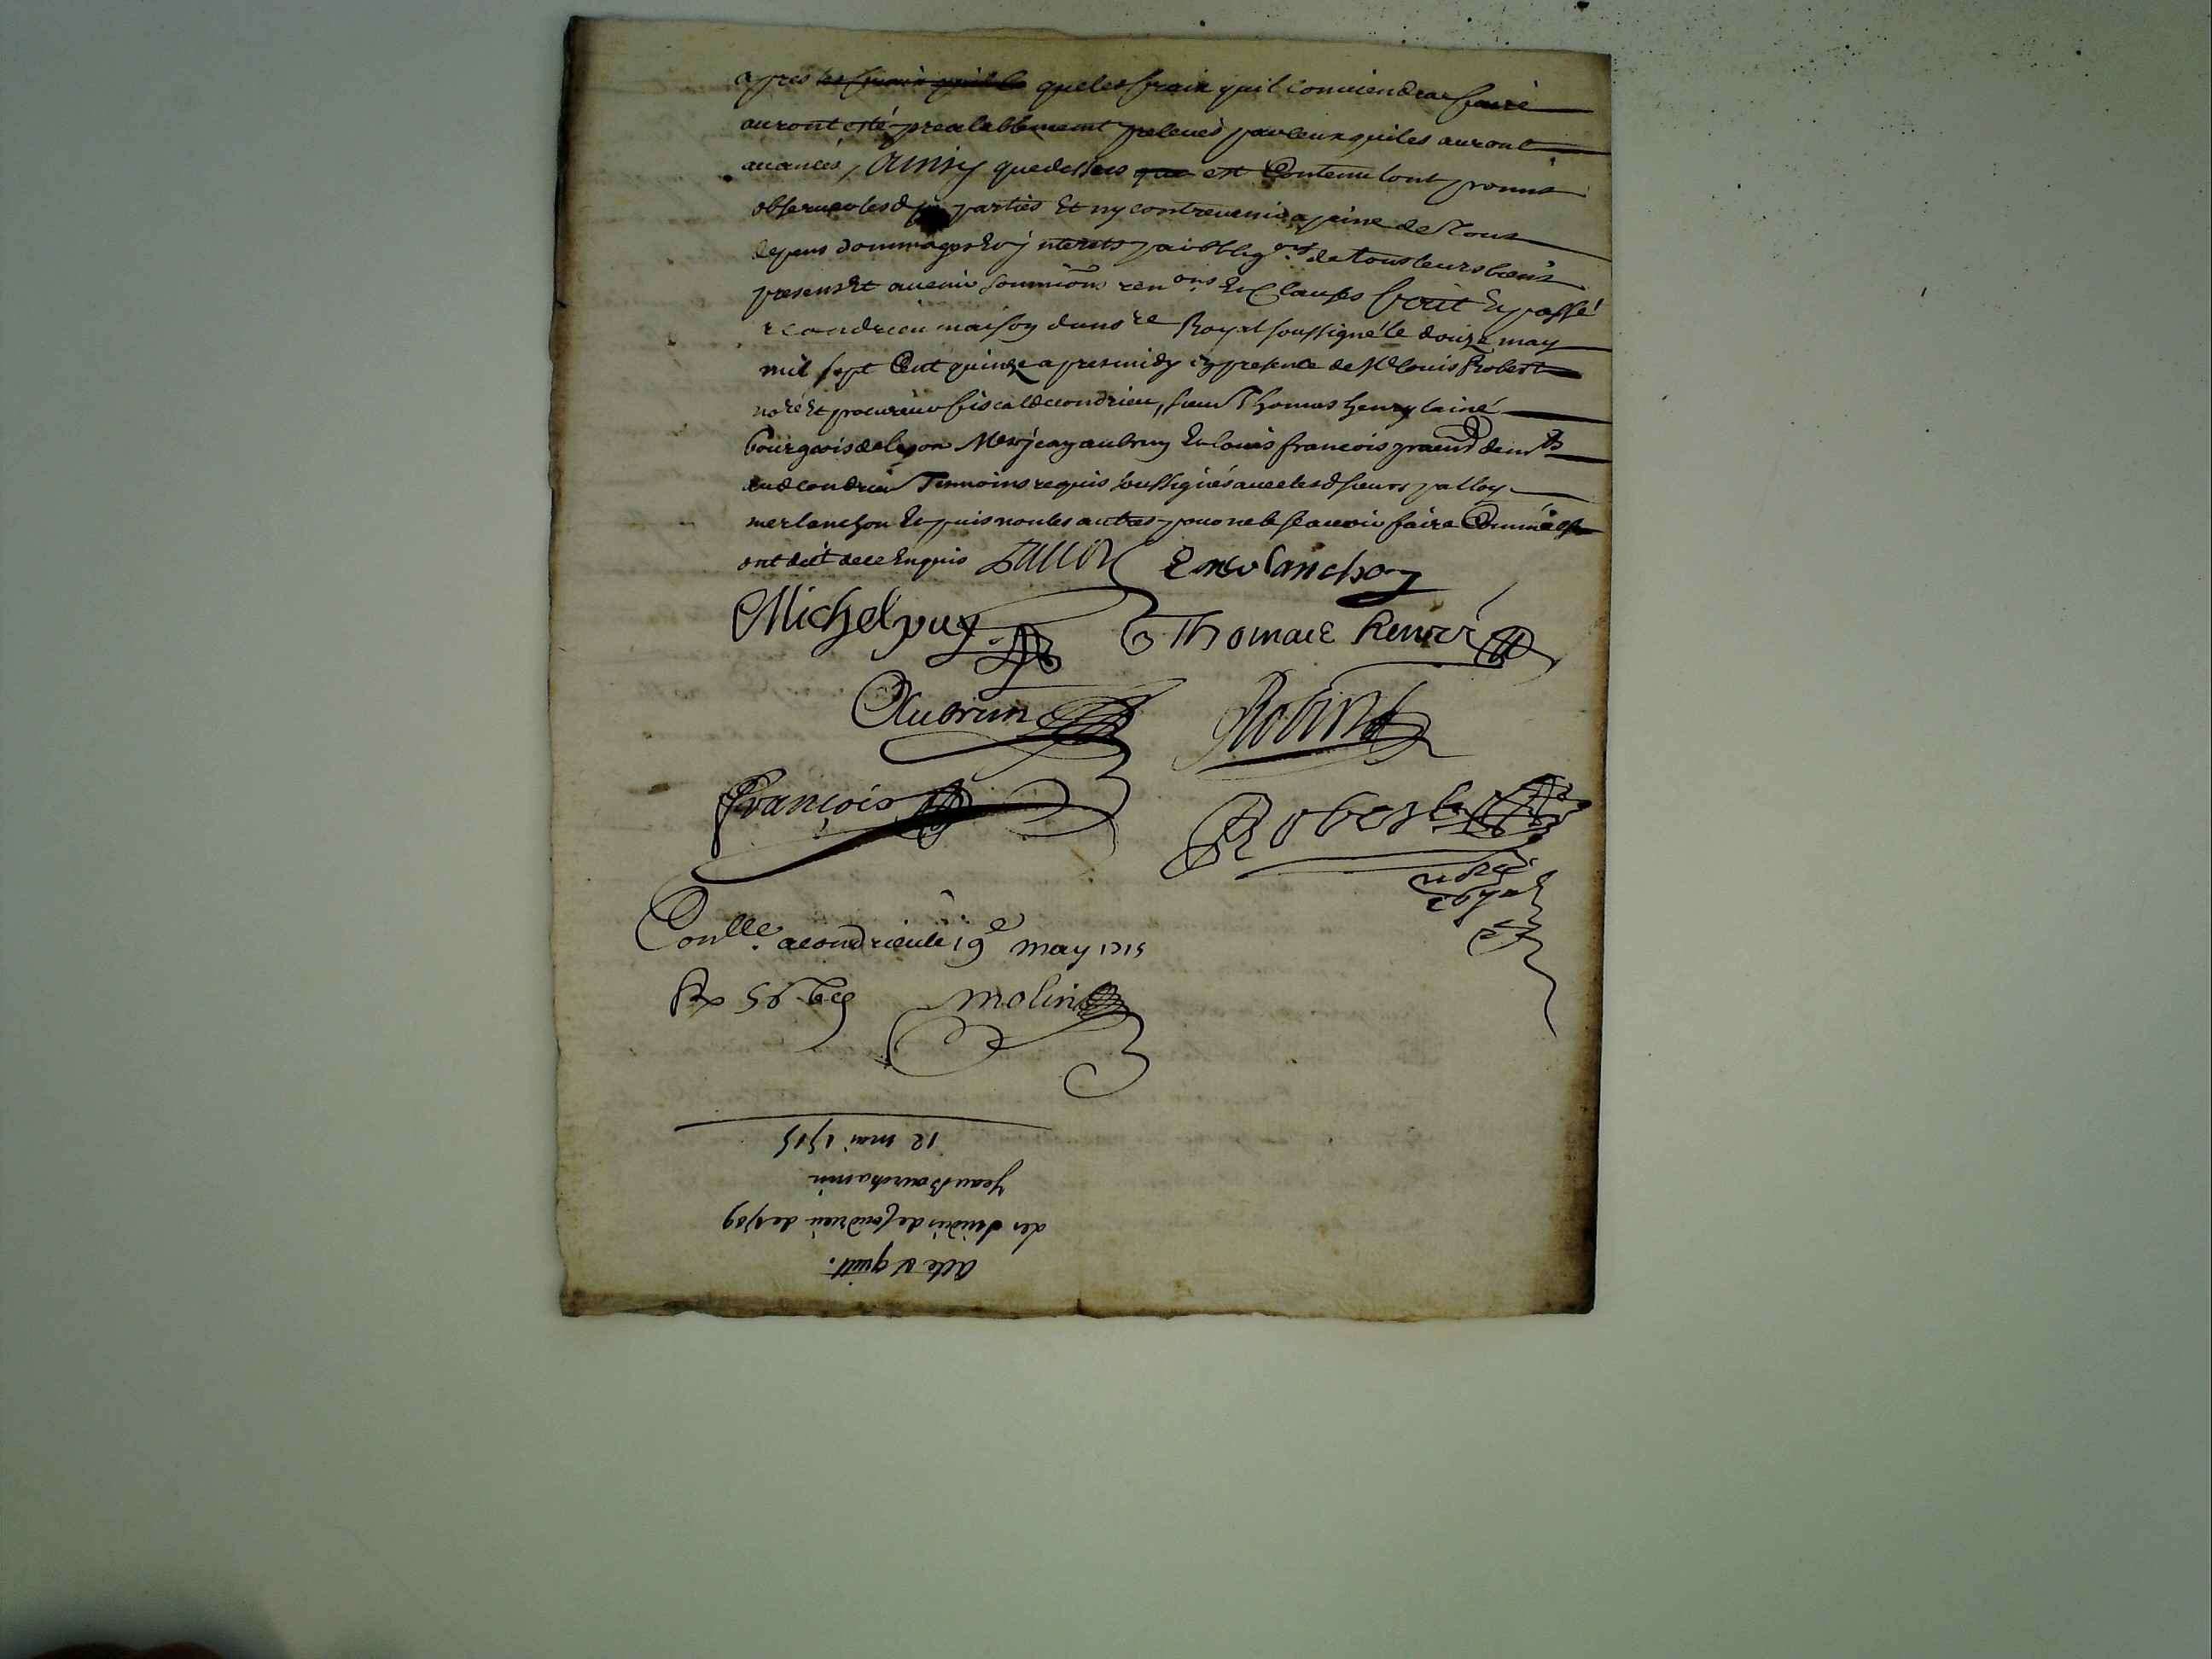 apres que les frais quil conviendra faire
auront esté prealablement prelevés par ceux qui les auront
avancés, Ainsy que dessus est Contenu lont promis
observer lesd parties Et ny contrevenir a peine de tous
depens dommages Et interets par obblig.ons de tous leurs biens
presens Et avenir soumiõns renons Et Clauses fait Et passé
a condrieu maison du nore Royal soussigné le douze may
mil sept Cent quinze apres midy En presence de Me louis Robert
nore Et procureur fiscal de condrieu, sieur Thomas henry laine
bourgeois de lyon Mes jean aubrun Et louis francois praend demts
aud condrieu Temoins requis soussignés avec lesd sieurs pallon
merlanchon Et puis non les autres pour ne le scavoir faire Comme ils
ont dit de ce Enquis Pallon E merlanchon
Michel puy Thomas Henri
Aubrun
françois Robert
nore
royal
Conlle. a condrieu le 19e may 1715
Rx molin
acte et quitt.
des sindics de Condrieu de 1709
Jean Bourchanin
12 mai 1715